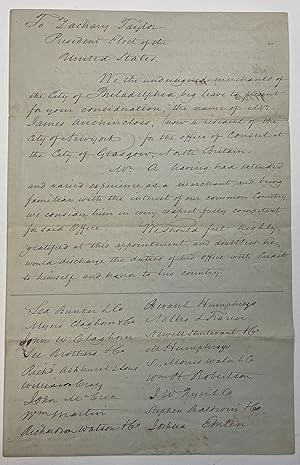 To Zachary Taylor
President Elect of the
United States.
We the undersigned merchants of
the City of Philadelphia beg leave to present
for your consideration, the name of Mr.
James Auchincloss, (now a resident of the
City of Newyork) for the office of Consul at
the City of Glasgow, North Britain.
Mr. A. having had extended
and varied experience as a merchant, and being
familiar with the interest of our common Country
we consider him in every respect fully competent
for said Office. We should feel highly
gratified at this appointment, and doubtless he
would discharge the duties of this office with Credit
to himself and honor to his country.
Geo Bunker & Co
Myers Claghorn & Co
John W Claghorn
Lee Brothers & Co
Richd Ashhurst & Sons
William Craig
John McCrea
Wm Martin
Richardson Watson & Co
Bevan & Humphreys
Newell Sturtevant & Co
M Humphreys
S. Morris Waln & Co
Wm H Robertson
Stephen Baldwin & Co
Joshua